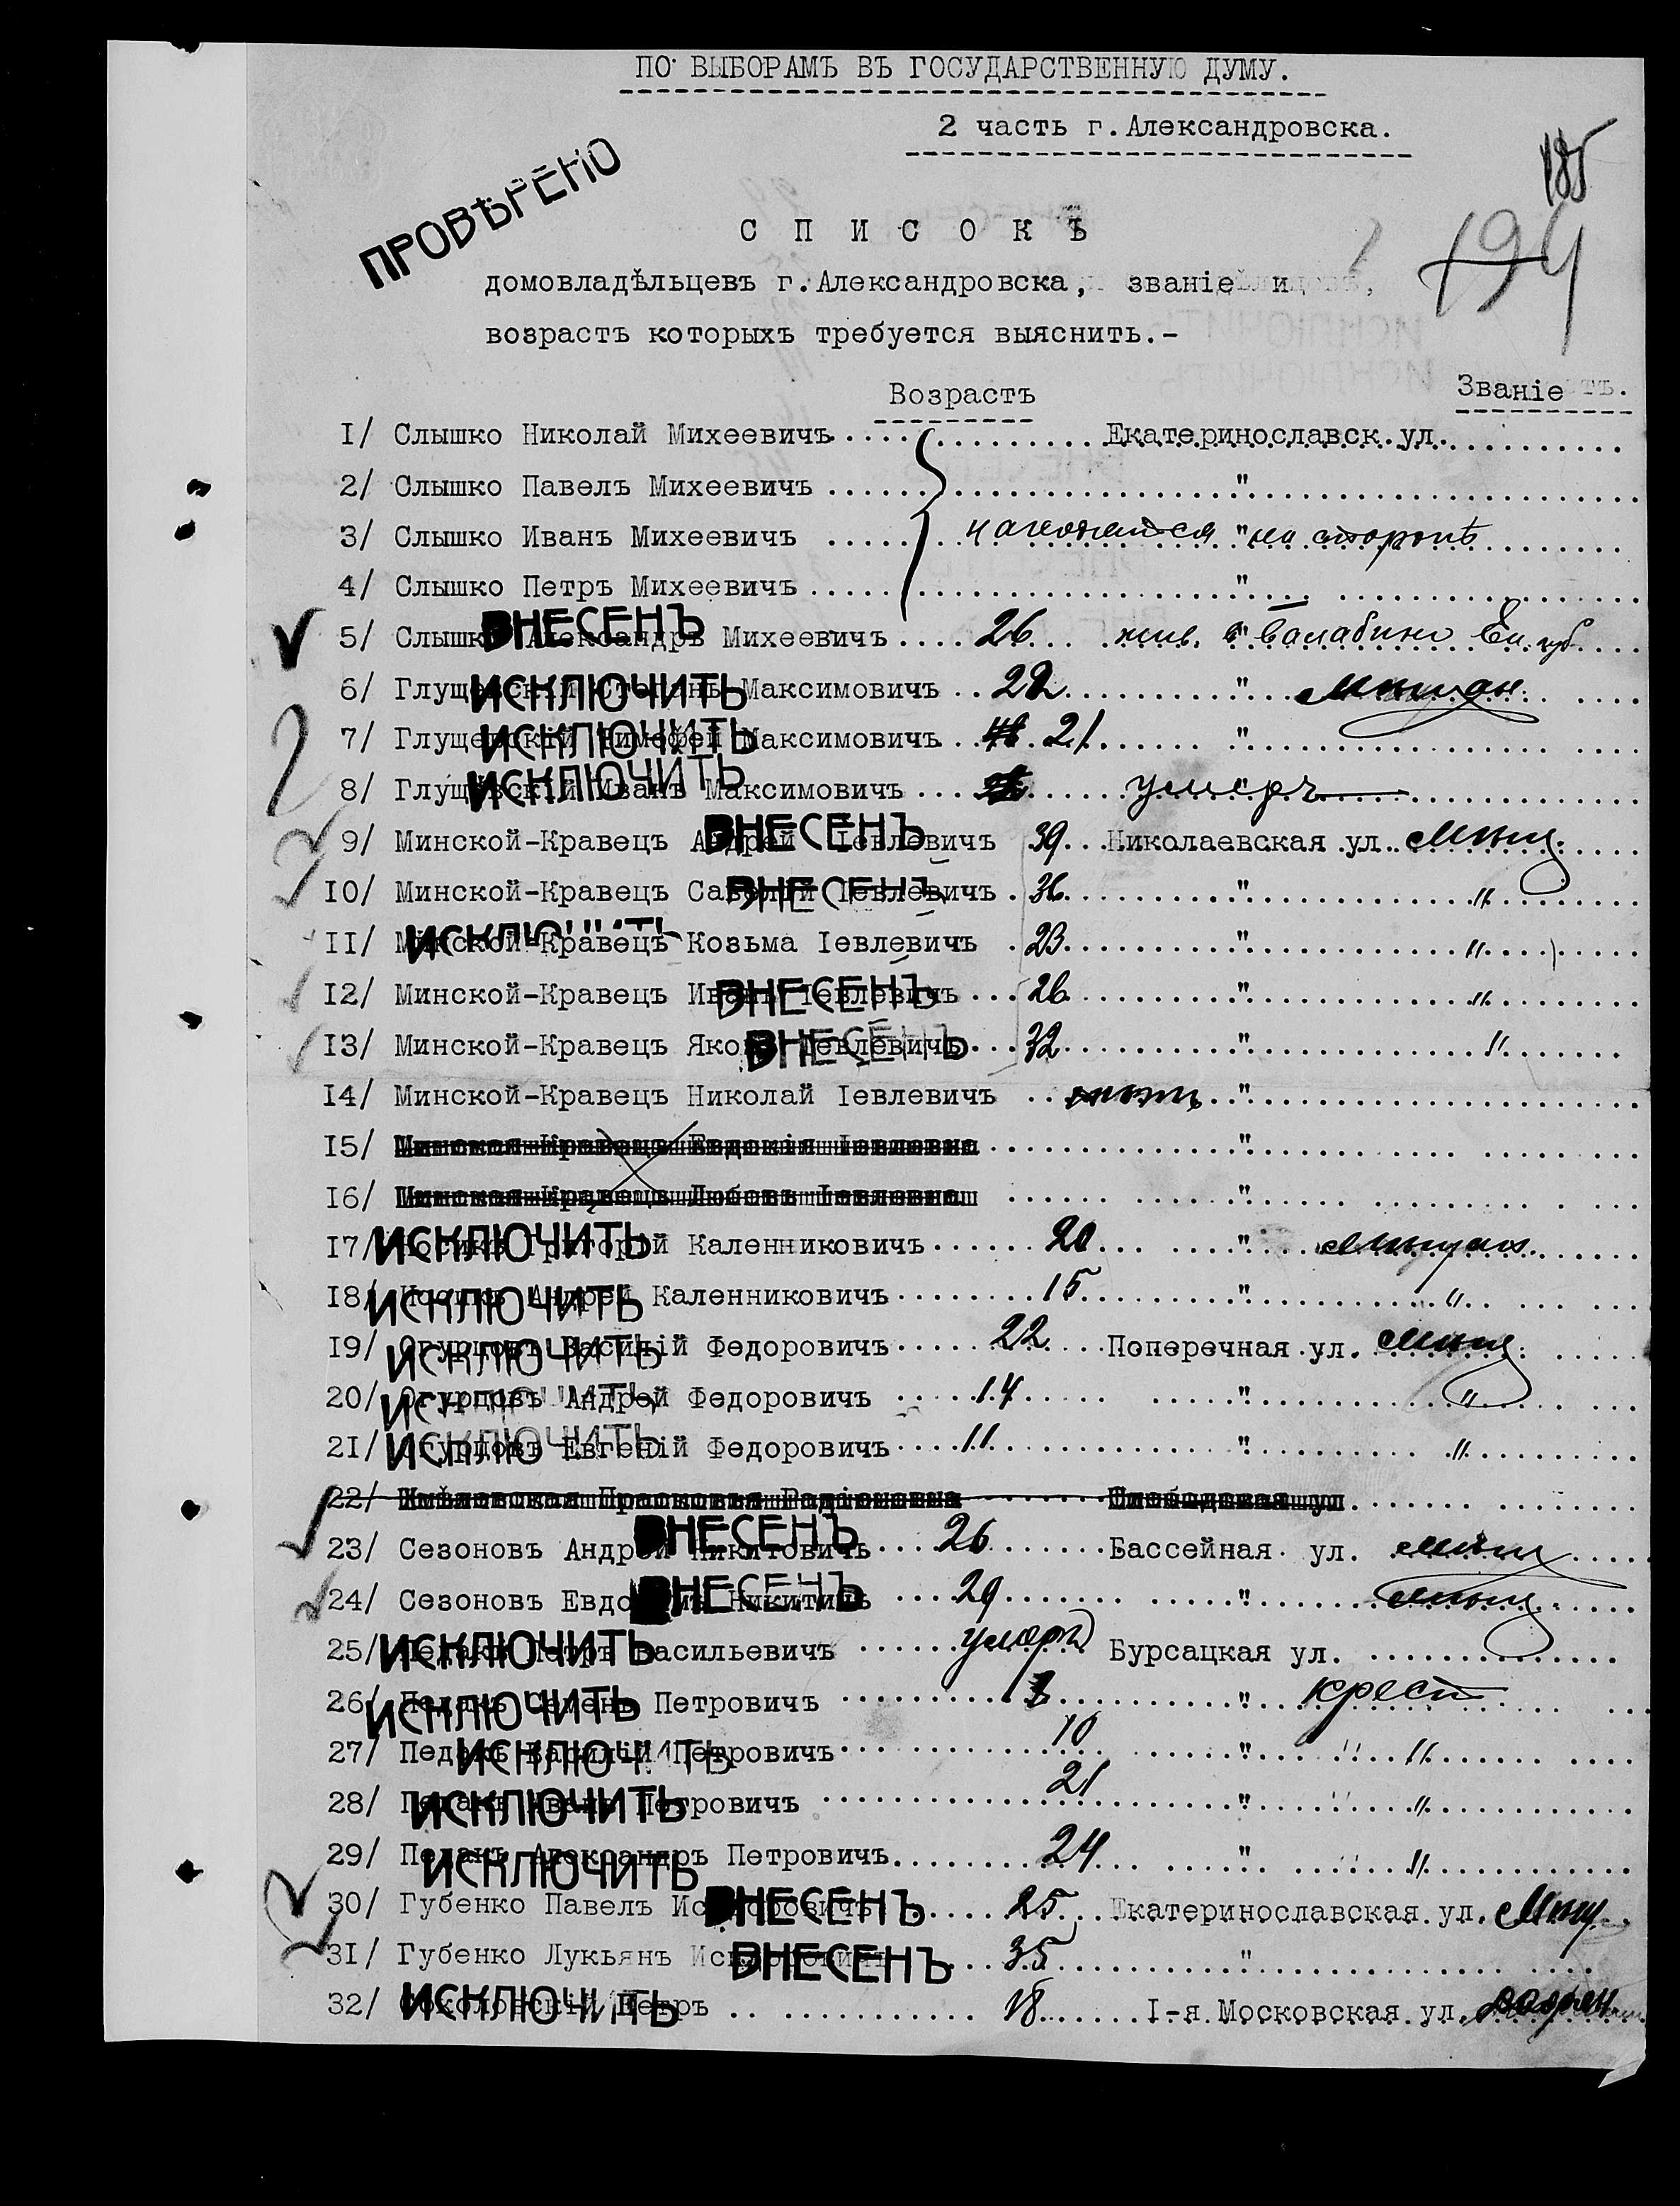 ПО ВЫБОРАМЪ ВЪ ГОСУДАРСТВЕННУЮ ДУМУ.
2 часть г.Александровска.
185
194
ПРОВѢРЕНО
СПИСОКЪ
домовладѣльцевъ г.Александровска, званіе и
возрастъ которыхъ требуется выяснить.-
Возрастъ Званіе
1/ Слышко Николай Михеевичъ Екатеринославск.ул.
2/ Слышко Павелъ Михеевичъ "
3/ Слышко Иванъ Михеевичъ находятся " на сторонѣ
4/ Слышко Петръ Михеевичъ "
5/ Слышко Александръ Михеевичъ ВНЕСЕНЪ 26 жив. в " Балабино Ек. губ.
6/ Глущевскій Степанъ Максимовичъ ИСКЛЮЧИТЬ 22 " мѣщан.
7/ Глущевскій Тимофей Максимовичъ ИСКЛЮЧИТЬ 21 "
8/ Глущевскій Иванъ Максимовичъ ИСКЛЮЧИТЬ умеръ "
9/ Минской-Кравецъ Андрей Іевлевичъ ВНЕСЕНЪ 39 Николаевская ул. мѣщ.
10/ Минской-Кравецъ Савелій Іевлевичъ ВНЕСЕНЪ 36 " "
11/ Минской-Кравецъ Козьма Іевлевичъ ИСКЛЮЧИТЬ 23 " "
12/ Минской-Кравецъ Иванъ Іевлевичъ ВНЕСЕНЪ 26 " "
13/ Минской-Кравецъ Яковъ Іевлевичъ ВНЕСЕНЪ 32 " "
14/ Минской-Кравецъ Николай Іевлевичъ "
15/ Минская-Кравецъ Евдокія Іевлевна "
16/ Минская-Кравецъ Любовь Іевлевна "
17/ Носикъ Григорій Каленниковичъ ИСКЛЮЧИТЬ 20 " мѣщан.
18/ Носикъ Андрей Каленниковичъ ИСКЛЮЧИТЬ 15 " "
19/ Огурцовъ Василій Федоровичъ ИСКЛЮЧИТЬ 22 Поперечная ул. мѣщ.
20/ Огурцовъ Андрей Федоровичъ ИСКЛЮЧИТЬ 14 " "
21/ Огурцовъ Евгеній Федоровичъ ИСКЛЮЧИТЬ 11 " "
22/ Прасковья Радіоновна Слободовая ул
23/ Сезоновъ Андрей Никитовичъ ВНЕСЕНЪ 26 Бассейная ул. мѣщ
24/ Сезоновъ Евдокимъ Никитичъ ВНЕСЕНЪ 29 " мѣщ.
25/ Педакъ Петръ Васильевичъ ИСКЛЮЧИТЬ умеръ Бурсацкая ул.
26/ Педакъ Семенъ Петровичъ ИСКЛЮЧИТЬ " крест
27/ Педакъ Василій Петровичъ ИСКЛЮЧИТЬ 10 " "
28/ Педакъ Иванъ Петровичъ ИСКЛЮЧИТЬ 21 " "
29/ Педакъ Александръ Петровичъ ИСКЛЮЧИТЬ 24 " "
30/ Губенко Павелъ Исидоровичъ ВНЕСЕНЪ 25 Екатеринославская ул. Мѣщ.
31/ Губенко Лукьянъ Исидоровичъ ВНЕСЕНЪ 35 "
32/ Соколовскій Петръ ИСКЛЮЧИТЬ 18 1-я Московская ул.